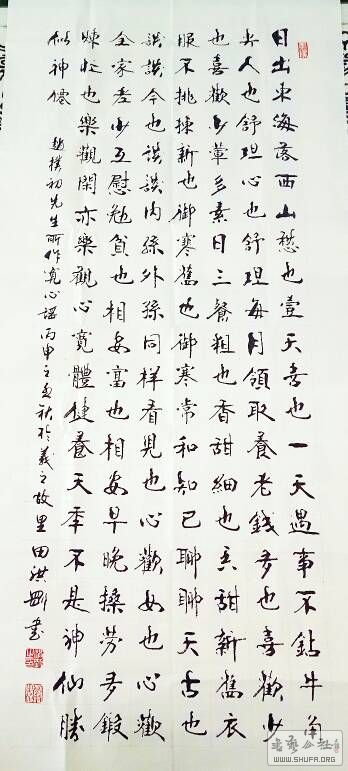 日出東海落西山愁也壹天喜也一天遇事不鉆牛角
尖人也舒坦心也舒坦每月領取養老錢多也喜歡少
也喜歡少葷多素日三餐粗也香甜細也香甜新舊衣
服不挑揀新也御寒舊也御寒常和知己聊聊天古也
談談今也談談內孫外孫同樣看兒也心歡女也心歡
全家老少互慰勉貧也相安富也相安早晚操勞多鍛
煉忙也樂觀閑亦樂觀心寬體健養天年不是神仙勝
似神僊 趙樸初先生所作寬心謠丙申之秋於羲之故里田洪剛書
WWW.SHUFR.ORG